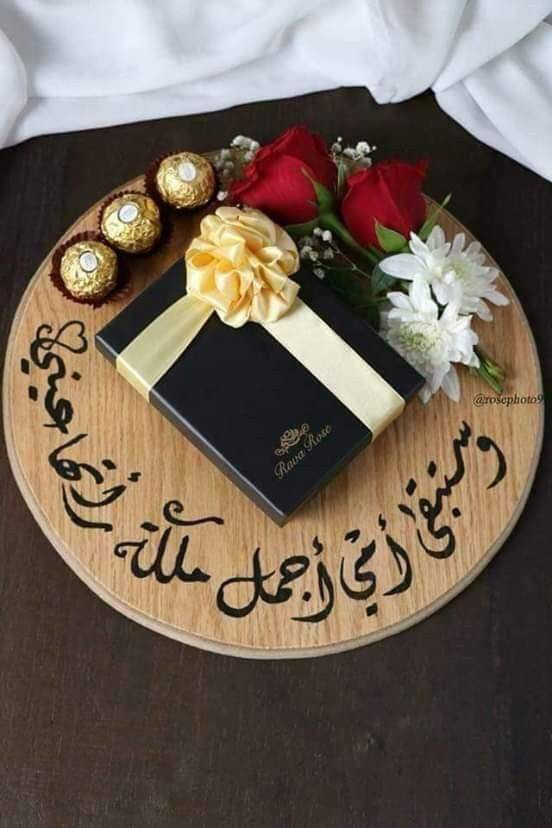 وستبقى أمي أجمل ملكة رأتها عيني
Rava Rose
@rosephoto9